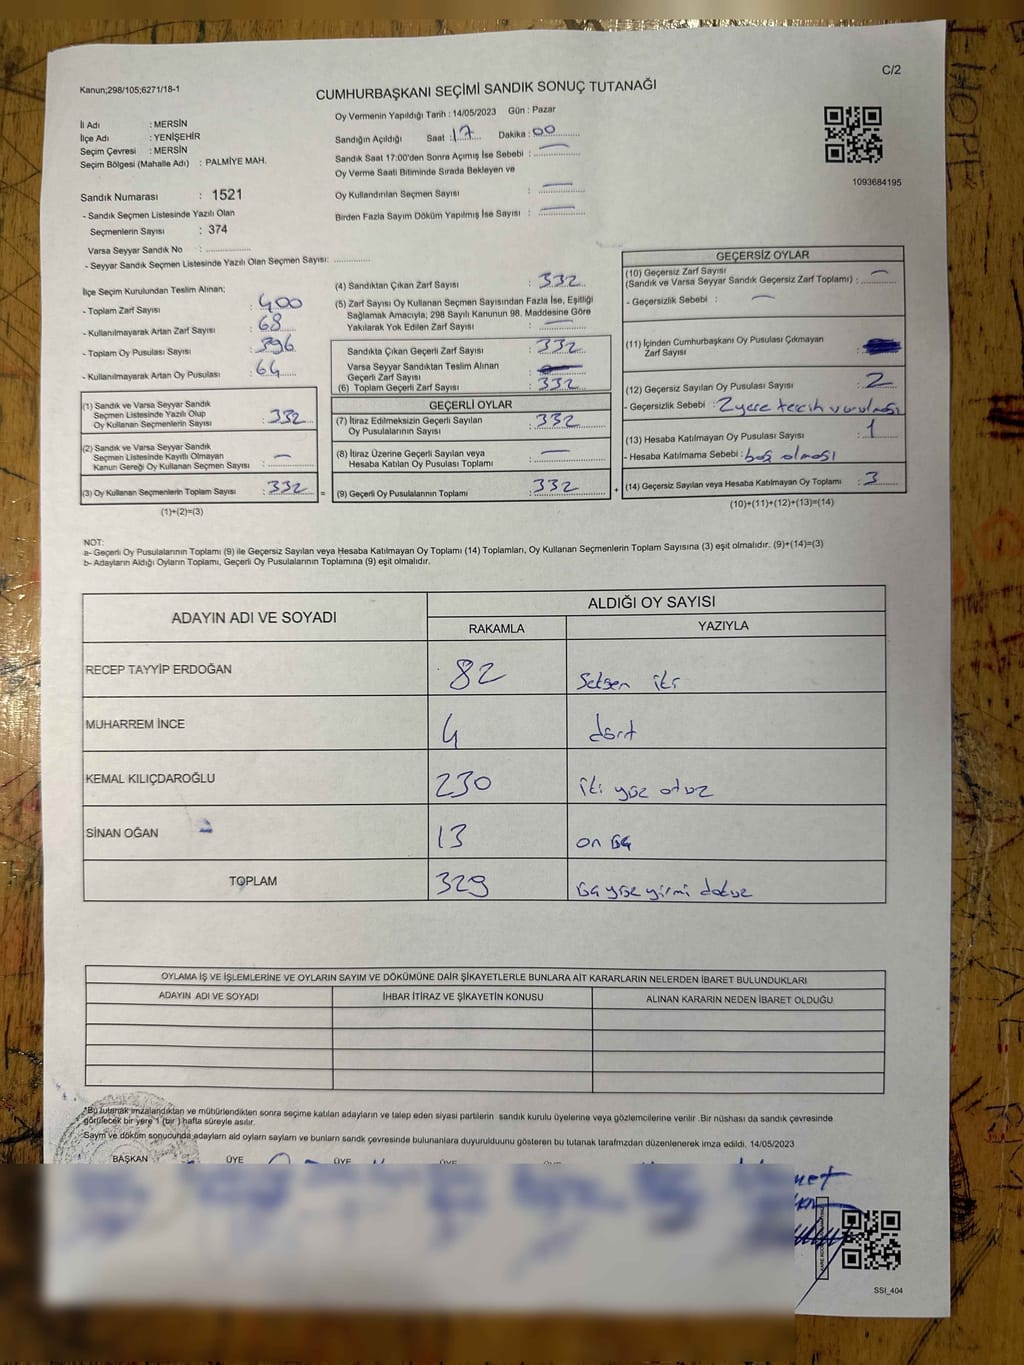 C/2
Kanun;298/105;6271/18-1
CUMHURBAŞKANI SEÇİMİ SANDIK SONUÇ TUTANAĞI
İl Adı : MERSİN
İlçe Adı : YENİŞEHİR
Seçim Çevresi : MERSİN
Seçim Bölgesi (Mahalle Adı) : PALMİYE MAH.
Sandık Numarası : 1521
- Sandık Seçmen Listesinde Yazılı Olan
Seçmenlerin Sayısı : 374
Varsa Seyyar Sandık No : ..............
- Seyyar Sandık Seçmen Listesinde Yazılı Olan Seçmen Sayısı: ............
Oy Vermenin Yapıldığı Tarih : 14/05/2023 Gün : Pazar
Sandığın Açıldığı Saat : 17 Dakika : 00
Sandık Saat 17:00'den Sonra Açımış İse Sebebi : —
Oy Verme Saati Bitiminde Sırada Bekleyen ve
Oy Kullandırılan Seçmen Sayısı : —
Birden Fazla Sayım Döküm Yapılmış İse Sayısı : —
1093684195
İlçe Seçim Kurulundan Teslim Alınan;
- Toplam Zarf Sayısı : 400
- Kullanılmayarak Artan Zarf Sayısı : 68
- Toplam Oy Pusulası Sayısı : 396
- Kullanılmayarak Artan Oy Pusulası : 64
(1) Sandık ve Varsa Seyyar Sandık
Seçmen Listesinde Yazılı Olup
Oy Kullanan Seçmenlerin Sayısı : 332
(2) Sandık ve Varsa Seyyar Sandık
Seçmen Listesinde Kayıtlı Olmayan
Kanun Gereği Oy Kullanan Seçmen Sayısı : —
(3) Oy Kullanan Seçmenlerin Toplam Sayısı : 332 =
(1)+(2)=(3)
(4) Sandıktan Çıkan Zarf Sayısı : 332
(5) Zarf Sayısı Oy Kullanan Seçmen Sayısından Fazla İse, Eşitliği
Sağlamak Amacıyla; 298 Sayılı Kanunun 98. Maddesine Göre
Yakılarak Yok Edilen Zarf Sayısı : —
Sandıkta Çıkan Geçerli Zarf Sayısı : 332
Varsa Seyyar Sandıktan Teslim Alınan
Geçerli Zarf Sayısı :
(6) Toplam Geçerli Zarf Sayısı : 332
GEÇERLİ OYLAR
(7) İtiraz Edilmeksizin Geçerli Sayılan
Oy Pusulalarının Sayısı : 332
(8) İtiraz Üzerine Geçerli Sayılan veya
Hesaba Katılan Oy Pusulası Toplamı : —
(9) Geçerli Oy Pusulalarının Toplamı : 332 +
GEÇERSİZ OYLAR
(10) Geçersiz Zarf Sayısı
(Sandık ve Varsa Seyyar Sandık Geçersiz Zarf Toplamı) : —
- Geçersizlik Sebebi : —
(11) İçinden Cumhurbaşkanı Oy Pusulası Çıkmayan
Zarf Sayısı :
(12) Geçersiz Sayılan Oy Pusulası Sayısı : 2
- Geçersizlik Sebebi : 2 yere tercih vurulması
(13) Hesaba Katılmayan Oy Pusulası Sayısı : 1
- Hesaba Katılmama Sebebi : boş olması
(14) Geçersiz Sayılan veya Hesaba Katılmayan Oy Toplamı : 3
(10)+(11)+(12)+(13)=(14)
NOT:
a- Geçerli Oy Pusulalarının Toplamı (9) ile Geçersiz Sayılan veya Hesaba Katılmayan Oy Toplamı (14) Toplamları, Oy Kullanan Seçmenlerin Toplam Sayısına (3) eşit olmalıdır. (9)+(14)=(3)
b- Adayların Aldığı Oyların Toplamı, Geçerli Oy Pusulalarının Toplamına (9) eşit olmalıdır.
ADAYIN ADI VE SOYADI ALDIĞI OY SAYISI
RAKAMLA YAZIYLA
RECEP TAYYİP ERDOĞAN 82 Seksen iki
MUHARREM İNCE 4 dört
KEMAL KILIÇDAROĞLU 230 iki yüz otuz
SİNAN OĞAN 13 on üç
TOPLAM 329 üç yüz yirmi dokuz
OYLAMA İŞ VE İŞLEMLERİNE VE OYLARIN SAYIM VE DÖKÜMÜNE DAİR ŞİKAYETLERLE BUNLARA AİT KARARLARIN NELERDEN İBARET BULUNDUKLARI
ADAYIN ADI VE SOYADI İHBAR İTİRAZ VE ŞİKAYETİN KONUSU ALINAN KARARIN NEDEN İBARET OLDUĞU
*Bu tutanak imzalandıktan ve mühürlendikten sonra seçime katılan adayların ve talep eden siyasi partilerin sandık kurulu üyelerine veya gözlemcilerine verilir .Bir nüshası da sandık çevresinde
görülecek bir yere 1 (bir ) hafta süreyle asılır.
Sayım ve döküm sonucunda adayların ald oyların sayların ve bunların sandık çevresinde bulunanlara duyurulduunu gösteren bu tutanak tarafmzdan düzenlenerek imza edildi. 14/05/2023
BAŞKAN ÜYE ÜYE ÜYE
SSI_404